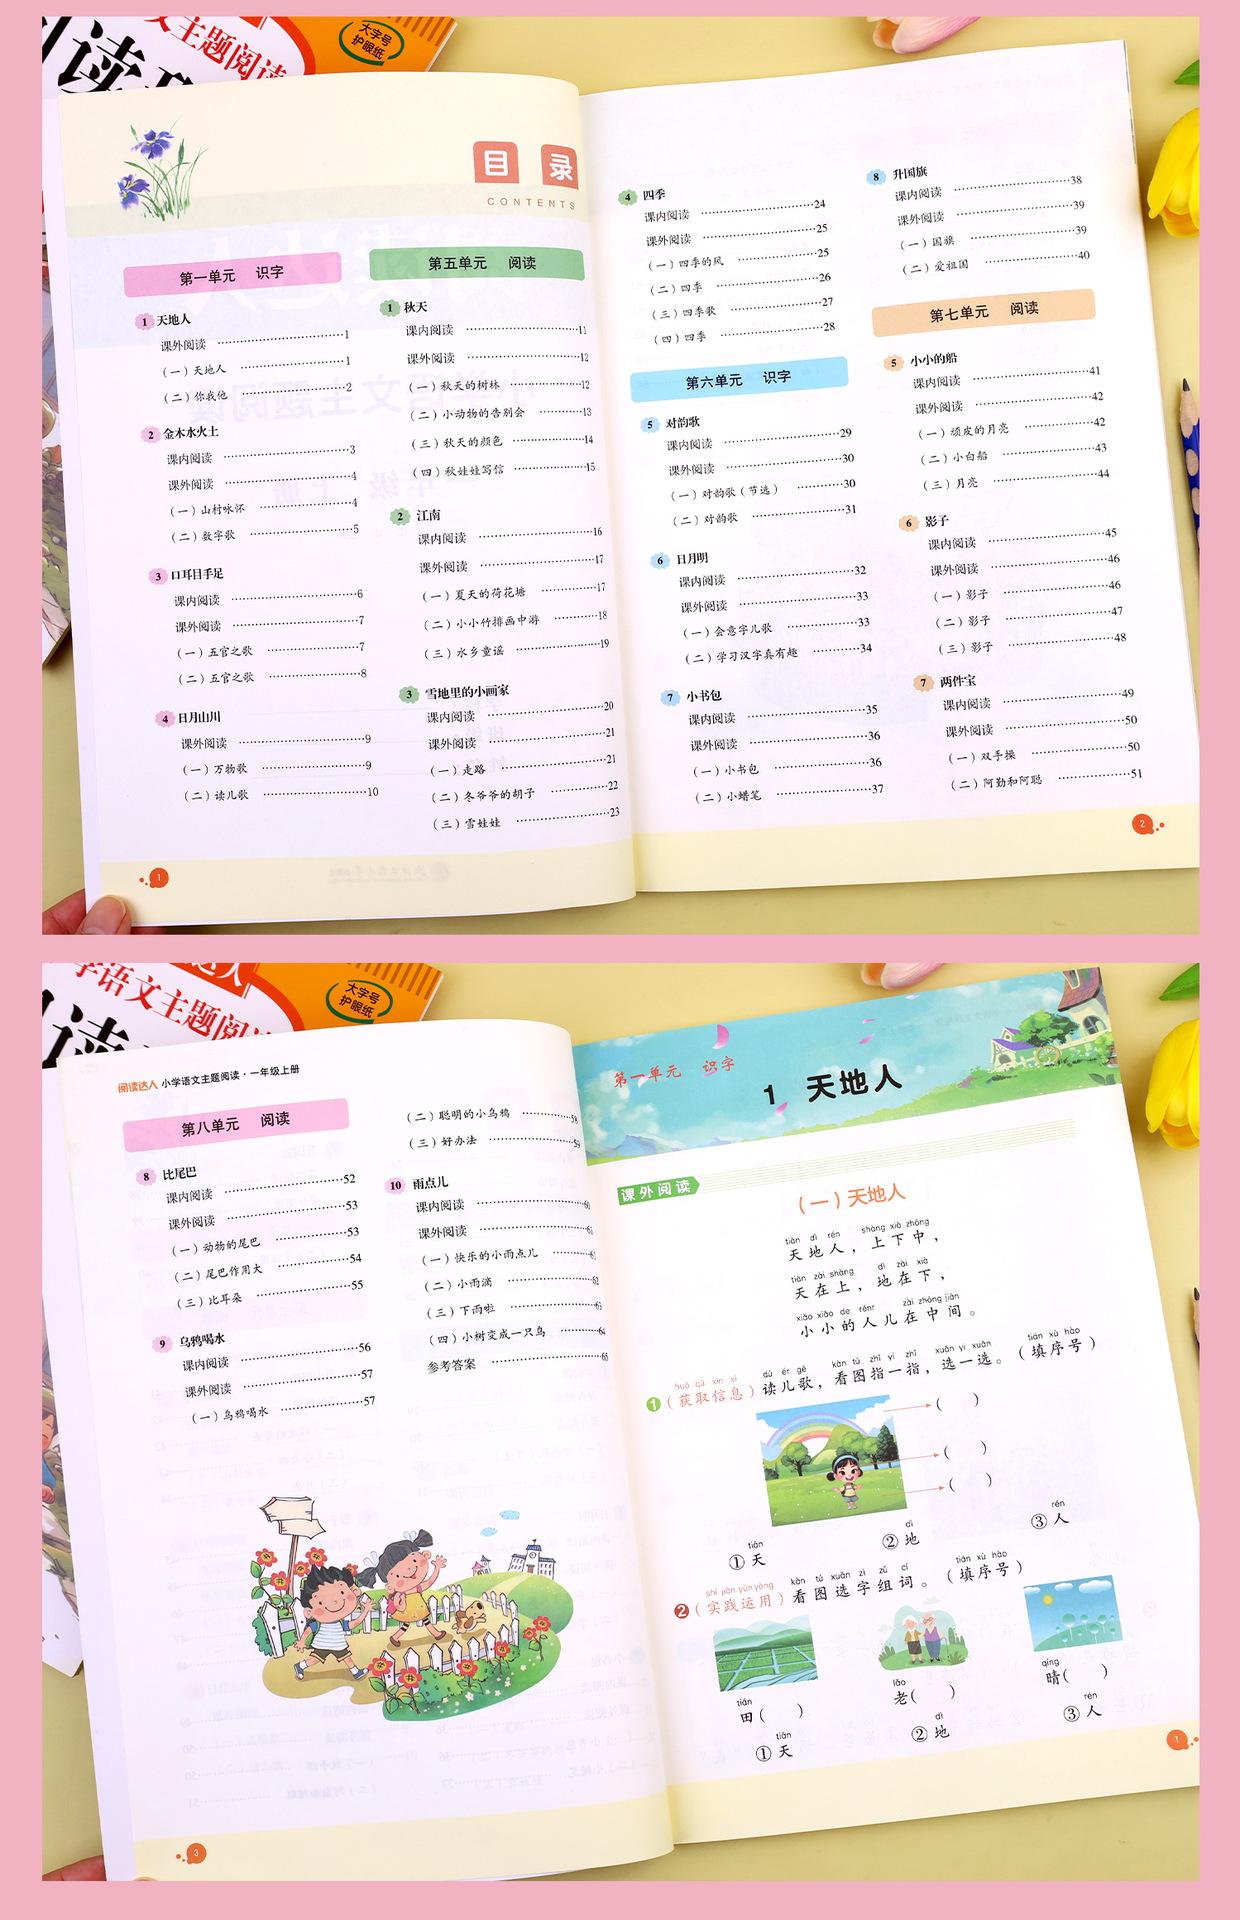 文主题阅读
大字号
护眼纸
目录
CONTENTS
第一单元 识字
1 天地人
课外阅读 1
（一）天地人 1
（二）你我他 2
2 金木水火土
课内阅读 3
课外阅读 4
（一）山村咏怀 4
（二）数字歌 5
3 口耳目手足
课内阅读 6
课外阅读 7
（一）五官之歌 7
（二）五官之歌 8
4 日月山川
课外阅读 9
（一）万物歌 9
（二）读儿歌 10
第五单元 阅读
1 秋天
课内阅读 11
课外阅读 12
（一）秋天的树林 12
（二）小动物的告别会 13
（三）秋天的颜色 14
（四）秋娃娃写信 15
2 江南
课内阅读 16
课外阅读 17
（一）夏天的荷花塘 17
（二）小小竹排画中游 18
（三）水乡童谣 19
3 雪地里的小画家
课内阅读 20
课外阅读 21
（一）走路 21
（二）冬爷爷的胡子 22
（三）雪娃娃 23
1
4 四季
课内阅读 24
课外阅读 25
（一）四季的风 25
（二）四季 26
（三）四季歌 27
（四）四季 28
第六单元 识字
5 对韵歌
课内阅读 29
课外阅读 30
（一）对韵歌（节选） 30
（二）对韵歌 31
6 日月明
课内阅读 32
课外阅读 33
（一）会意字儿歌 33
（二）学习汉字真有趣 34
7 小书包
课内阅读 35
课外阅读 36
（一）小书包 36
（二）小蜡笔 37
8 升国旗
课内阅读 38
课外阅读 39
（一）国旗 39
（二）爱祖国 40
第七单元 阅读
5 小小的船
课内阅读 41
课外阅读 42
（一）顽皮的月亮 42
（二）小白船 43
（三）月亮 44
6 影子
课内阅读 45
课外阅读 46
（一）影子 46
（二）影子 47
（三）影子 48
7 两件宝
课内阅读 49
课外阅读 50
（一）双手操 50
（二）阿勤和阿聪 51
2
学语文主题阅读
大字号
护眼纸
阅读达人 小学语文主题阅读·一年级上册
第八单元 阅读
8 比尾巴
课内阅读 52
课外阅读 53
（一）动物的尾巴 53
（二）尾巴作用大 54
（三）比耳朵 55
9 乌鸦喝水
课内阅读 56
课外阅读 57
（一）乌鸦喝水 57
（二）聪明的小乌鸦 58
（三）好办法 59
10 雨点儿
课内阅读 60
课外阅读 61
（一）快乐的小雨点儿 61
（二）小雨滴 62
（三）下雨啦 63
（四）小树变成一只鸟 64
参考答案 65
3
第一单元 识字
1 天地人
课外阅读
（一）天地人
tiān dì rén shàng xià zhōng
天地人，上下中，
tiān zài shàng dì zài xià
天在上，地在下，
xiǎo xiǎo de rénr zài zhōng jiān
小小的人儿在中间。
huò qǔ xìn xī dú ér gē kàn tú zhǐ yi zhǐ xuǎn yi xuǎn tián xù hào
1（获取信息）读儿歌，看图指一指，选一选。（填序号）
（ ）
（ ）
（ ）
tiān dì rén
①天 ②地 ③人
shí jiàn yùn yòng kàn tú xuǎn zì zǔ cí tián xù hào
2（实践运用）看图选字组词。（填序号）
tián lǎo qíng
田（ ） 老（ ） 晴（ ）
tiān dì rén
①天 ②地 ③人
1